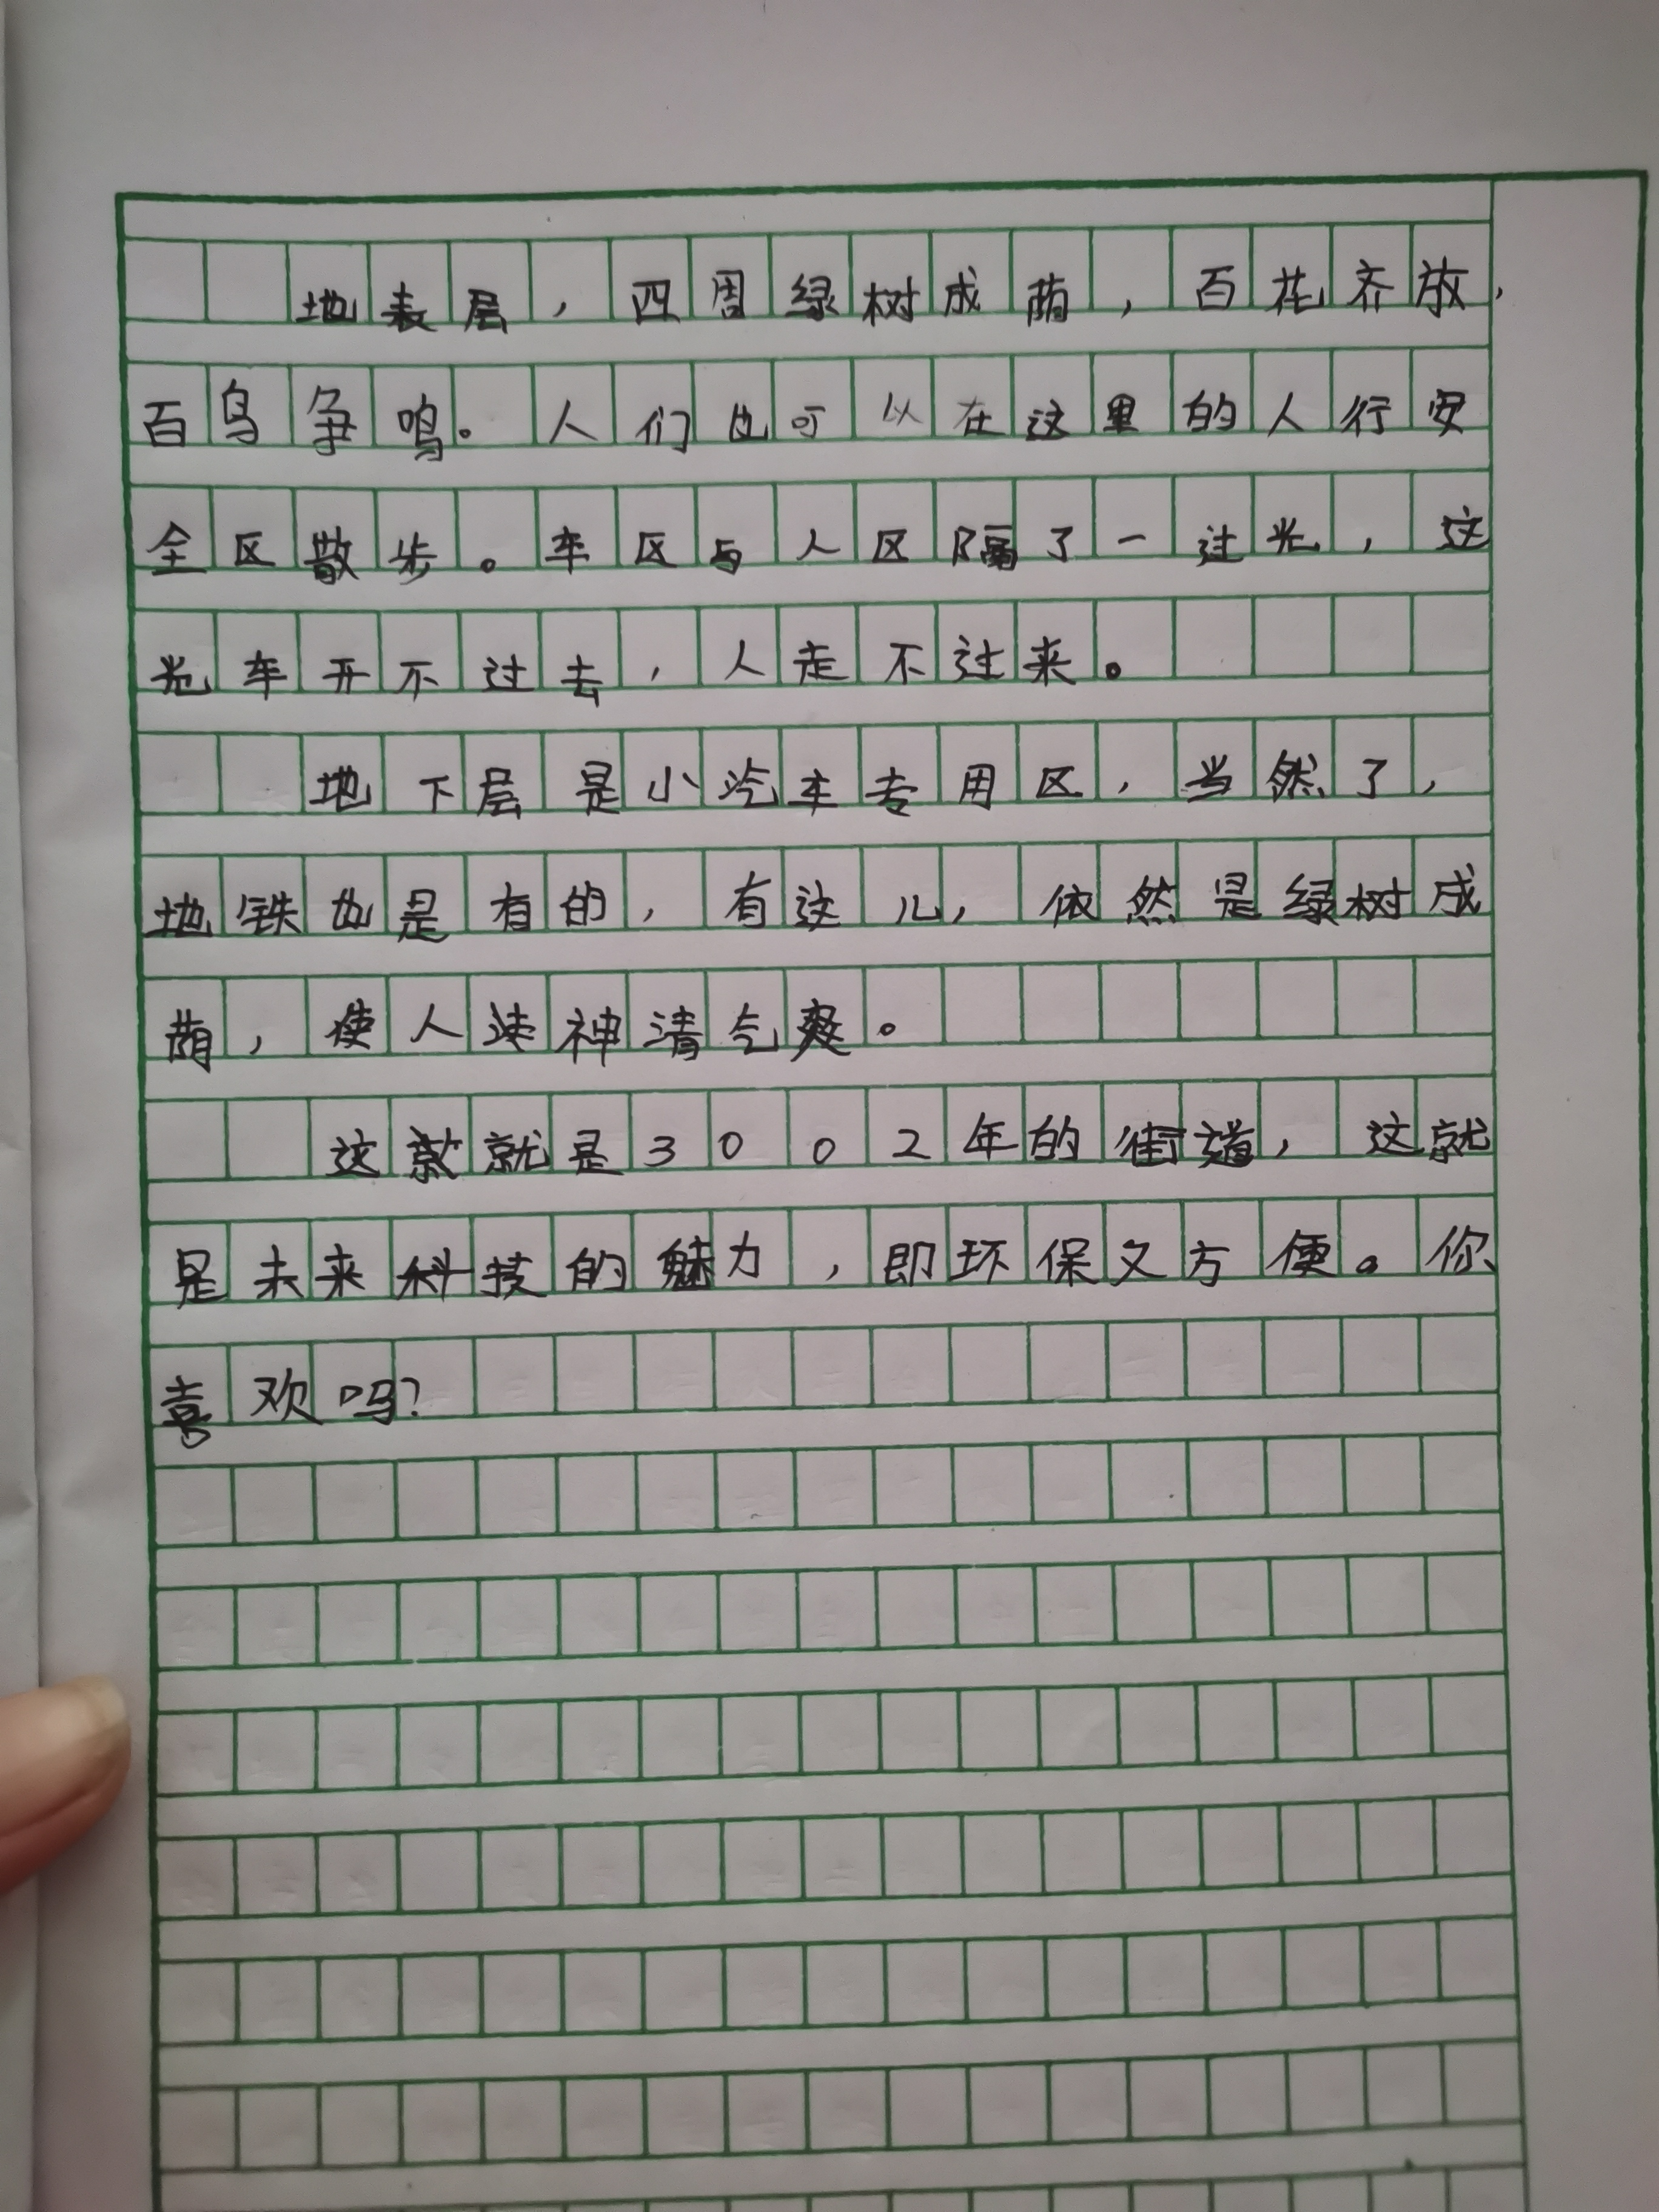 地表层，四周绿树成荫，百花齐放，
百鸟争鸣。人们也可以在这里的人行安
全区散步。车区与人区隔了一过光，这
光车开不过去，人走不过来。
地下层是小汽车专用区，当然了，
地铁也是有的，有这儿，依然是绿树成
荫，使人神清气爽。
这就是3002年的街道，这就
是未来科技的魅力，即环保又方便。你
喜欢吗？